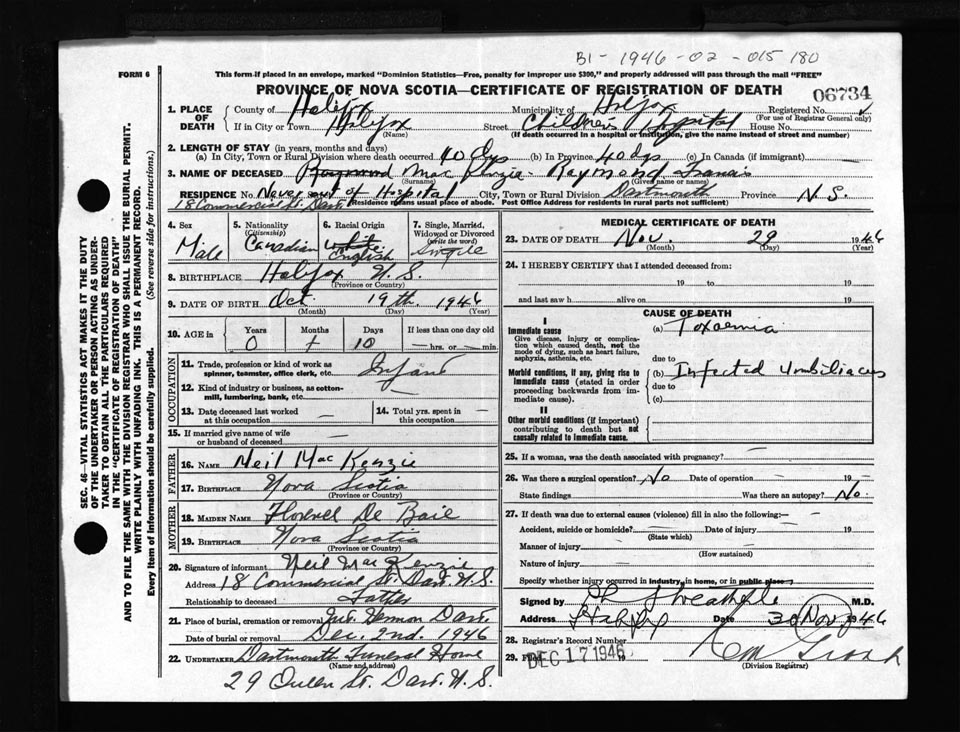 B1-1946-02-015180
FORM 6
This form if placed in an envelope, marked "Dominion Statistics—Free, penalty for improper use $300," and properly addressed will pass through the mail "FREE"
PROVINCE OF NOVA SCOTIA—CERTIFICATE OF REGISTRATION OF DEATH
06734
SEC. 46—VITAL STATISTICS ACT MAKES IT THE DUTY
OF THE UNDERTAKER OR PERSON ACTING AS UNDER-
TAKER TO OBTAIN ALL THE PARTICULARS REQUIRED
IN THE "CERTIFICATE OF REGISTRATION OF DEATH"
AND TO FILE THE SAME WITH THE DIVISION REGISTRAR WHO SHALL ISSUE THE BURIAL PERMIT.
WRITE PLAINLY WITH UNFADING INK. THIS IS A PERMANENT RECORD.
Every item of Information should be carefully supplied. (See reverse side for instructions.)
1. PLACE OF DEATH
County of Halifax Municipality of Halifax Registered No.
(For use of Registrar General only)
If in City or Town Halifax Street Children's Hospital House No.
(Name) (If death occurred in a hospital or institution, give the name instead of street and number)
2. LENGTH OF STAY (in years, months and days)
(a) In City, Town or Rural Division where death occurred 40 dys (b) In Province 40 dys (c) In Canada (if immigrant) —
3. NAME OF DECEASED Raymond Mac Kenzie - Raymond Francis
(Surname) (Given name or names)
RESIDENCE No. Never out of Hospital City, Town or Rural Division Dartmouth Province N.S.
18 Commercial St. Dart. (Residence means usual place of abode. Post Office Address for residents in rural parts not sufficient)
4. Sex
Male
5. Nationality
(Citizenship)
Canadian
6. Racial Origin
White
English
7. Single, Married,
Widowed or Divorced
(write the word)
Single
8. BIRTHPLACE Halifax N.S.
(Province or Country)
9. DATE OF BIRTH Oct 19th 1946
(Month) (Day) (Year)
10. AGE in
Years Months Days If less than one day old
0 1 10 — hrs. or — min.
OCCUPATION
11. Trade, profession or kind of work as
spinner, teamster, office clerk, etc. Infant
12. Kind of industry or business, as cotton-
mill, lumbering, bank, etc. —
13. Date deceased last worked
at this occupation —
14. Total yrs. spent in
this occupation —
15. If married give name of wife
or husband of deceased —
FATHER
16. NAME Neil Mac Kenzie
17. BIRTHPLACE Nova Scotia
(Province or Country)
MOTHER
18. MAIDEN NAME Florence De Baie
19. BIRTHPLACE Nova Scotia
(Province or Country)
20. Signature of informant Neil Mac Kenzie
Address 18 Commercial St. Dart. N.S.
Relationship to deceased Father
21. Place of burial, cremation or removal Mt. Hermon Dart.
Date of burial or removal Dec. 2nd. 1946
22. UNDERTAKER Dartmouth Funeral Home
(Name and address)
29 Queen St. Dart. N.S.
MEDICAL CERTIFICATE OF DEATH
23. DATE OF DEATH Nov. 29 1946
(Month) (Day) (Year)
24. I HEREBY CERTIFY that I attended deceased from:
19 to 19
and last saw h alive on 19
CAUSE OF DEATH
I
Immediate cause
Give disease, injury or complica-
tion which caused death, not the
mode of dying, such as heart failure,
asphyxia, asthenia, etc.
(a) Toxaemia
due to
Morbid conditions, if any, giving rise to
immediate cause (stated in order
proceeding backwards from im-
mediate cause).
(b) Infected Umbilicus
due to
(c)
II
Other morbid conditions (if important)
contributing to death but not
causally related to immediate cause.
25. If a woman, was the death associated with pregnancy? —
26. Was there a surgical operation? No Date of operation — 19
State findings Was there an autopsy? No.
27. If death was due to external causes (violence) fill in also the following:—
Accident, suicide or homicide? — Date of injury — 19
(State which)
Manner of injury —
(How sustained)
Nature of injury —
Specify whether injury occurred in industry, in home, or in public place
Signed by M.D.
Address Halifax Date 30 Nov 1946
28. Registrar's Record Number
29. DEC 17 1946
(Division Registrar)